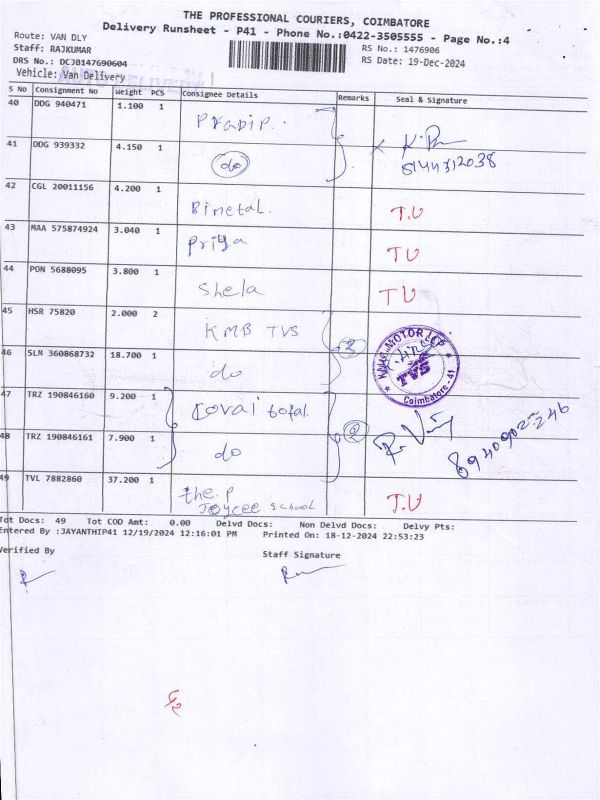 THE PROFESSIONAL COURIERS, COIMBATORE
Delivery Runsheet - P41 - Phone No.:0422-3505555 - Page No.:4
Route: VAN DLY
RS No.: 1476906
Staff: RAJKUMAR
RS Date: 19-Dec-2024
DRS No.: DCJB147690604
Vehicle: Van Delivery
S No Consignment No Weight PCS Consignee Details Remarks Seal & Signature
40 DDG 940471 1.100 1 Pradip.
41 DDG 939332 4.150 1 do
42 CGL 20011156 4.200 1 Bimetal. T.U
43 MAA 575874924 3.040 1 Priya TU
44 PON 5688095 3.800 1 Shela TU
45 HSR 75820 2.000 2 KMB TVS
46 SLM 360868732 18.700 1 do
MOTOR
TVS
Coimbatore - 41
47 TRZ 190846160 9.200 1 Kovai total.
48 TRZ 190846161 7.900 1 do 2
49 TVL 7882860 37.200 1 the.P Joycee School T.U
Tot Docs: 49 Tot COD Amt: 0.00 Delvd Docs: Non Delvd Docs: Delvy Pts:
Entered By :JAYANTHIP41 12/19/2024 12:16:01 PM Printed On: 18-12-2024 22:53:23
Verified By Staff Signature